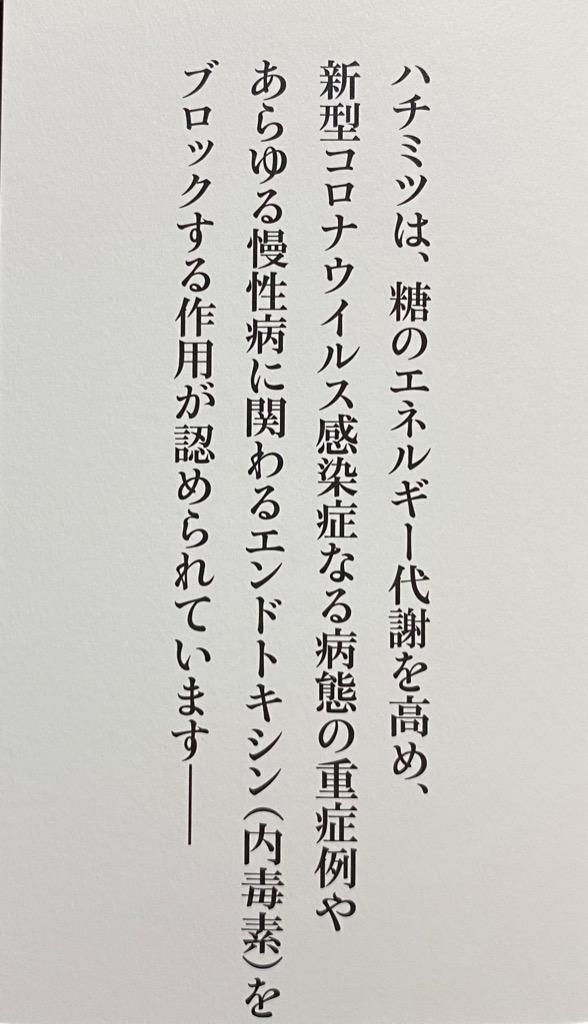 ハチミツは、糖のエネルギー代謝を高め、
新型コロナウイルス感染症なる病態の重症例や
あらゆる慢性病に関わるエンドトキシン(内毒素)を
ブロックする作用が認められています――